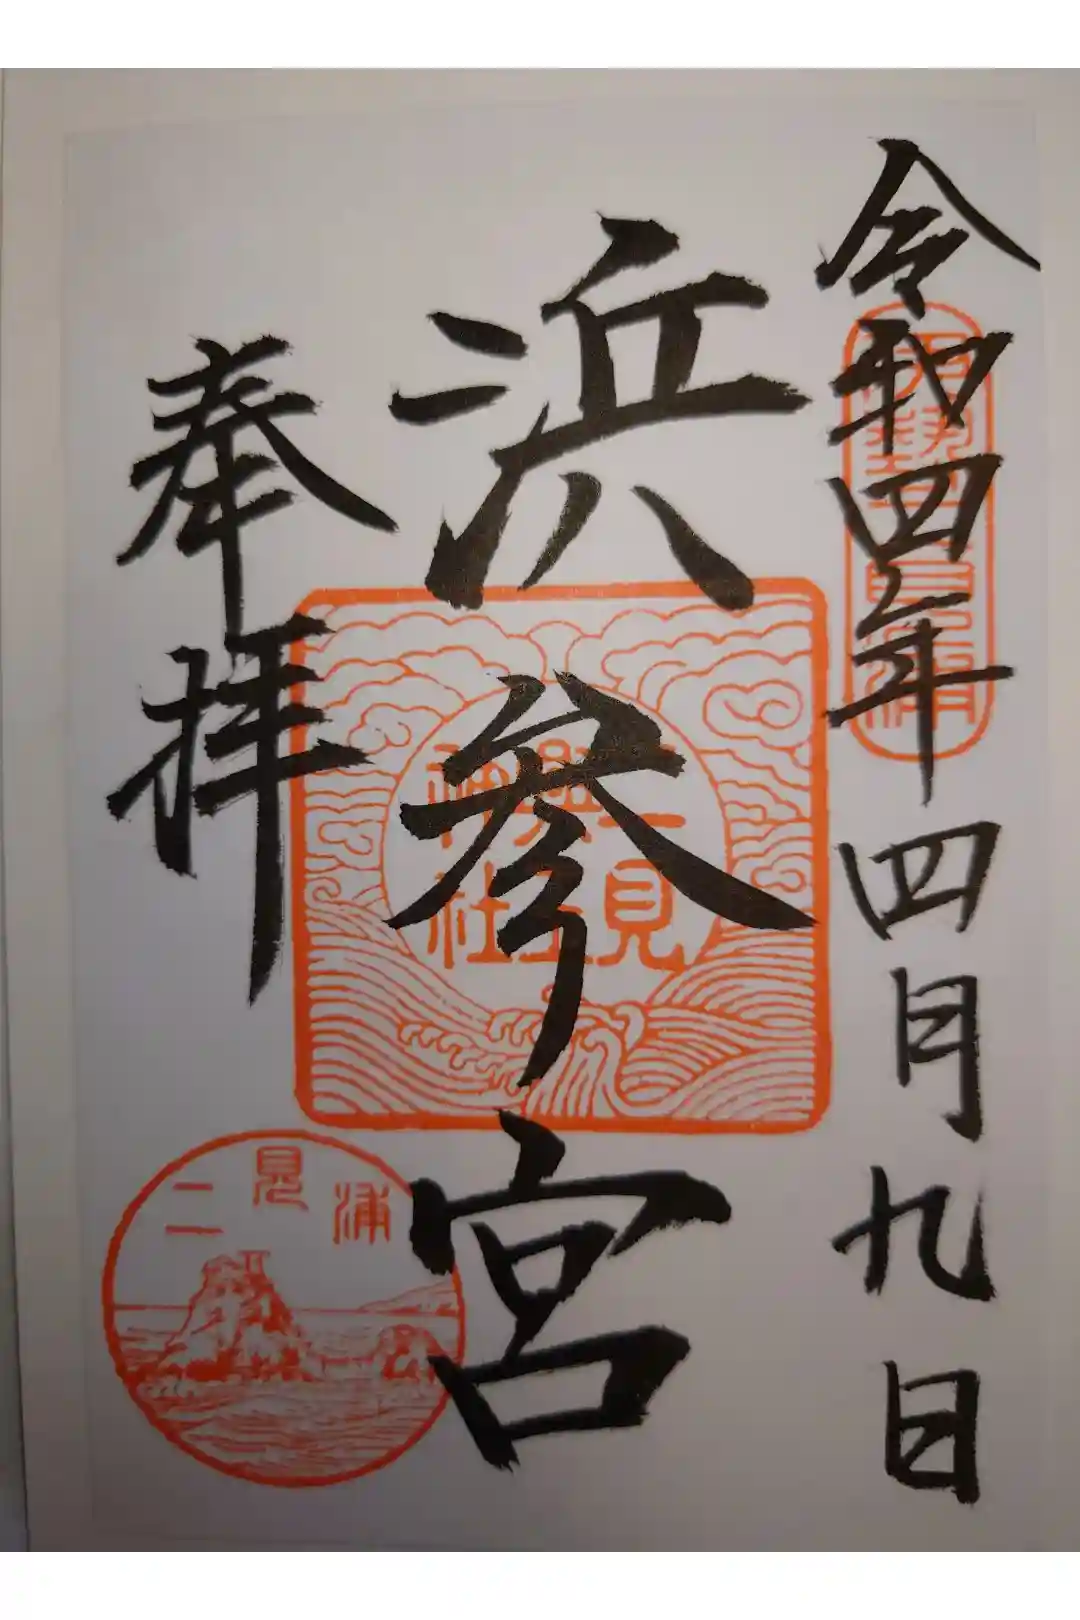 令和四年四月九日
浜参宮
奉拝
二見興玉神社
二見浦